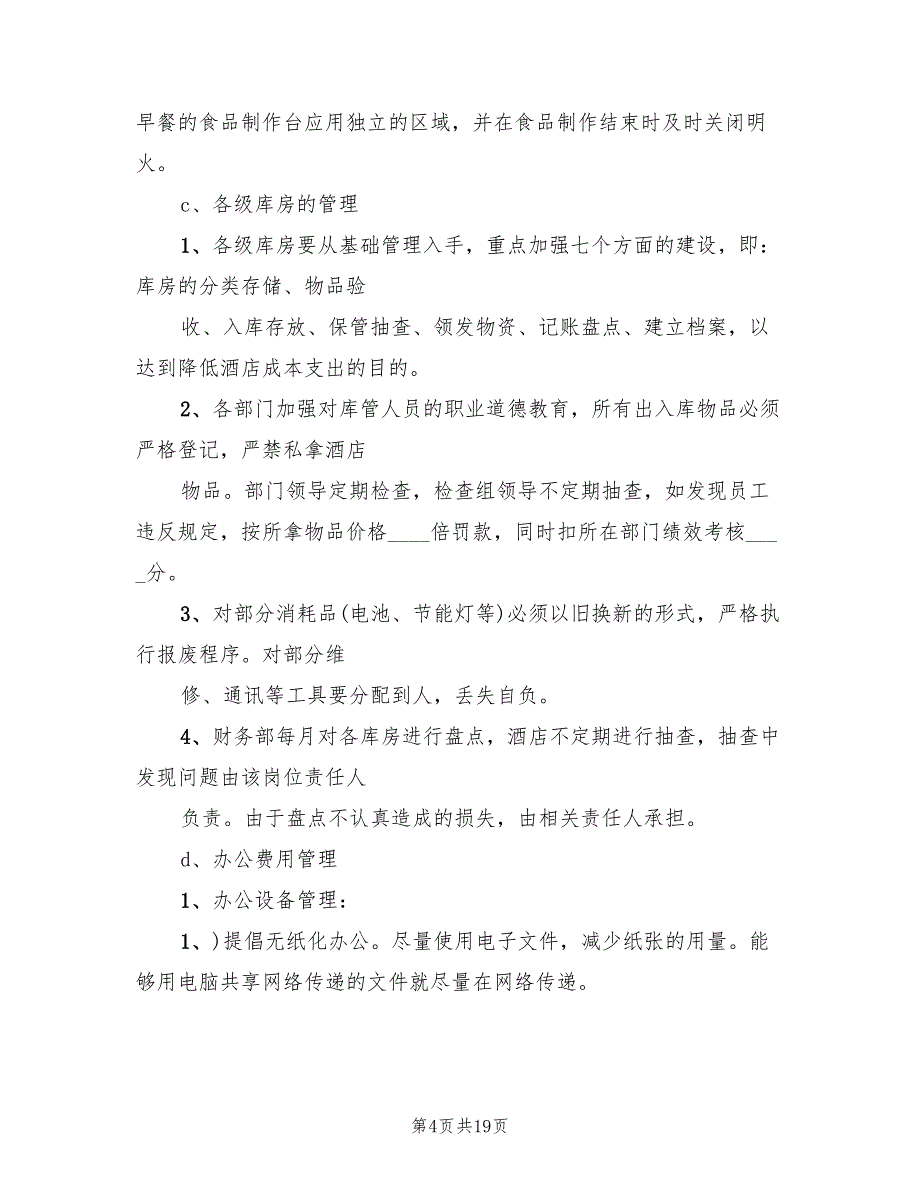 早餐的食品制作台应用独立的区域，并在食品制作结束时及时关闭明
火。
c、各级库房的管理
1、各级库房要从基础管理入手，重点加强七个方面的建设，即：
库房的分类存储、物品验
收、入库存放、保管抽查、领发物资、记账盘点、建立档案，以
达到降低酒店成本支出的目的。
2、各部门加强对库管人员的职业道德教育，所有出入库物品必须
严格登记，严禁私拿酒店
物品。部门领导定期检查，检查组领导不定期抽查，如发现员工
违反规定，按所拿物品价格____倍罚款，同时扣所在部门绩效考核___
_分。
3、对部分消耗品(电池、节能灯等)必须以旧换新的形式，严格执
行报废程序。对部分维
修、通讯等工具要分配到人，丢失自负。
4、财务部每月对各库房进行盘点，酒店不定期进行抽查，抽查中
发现问题由该岗位责任人
负责。由于盘点不认真造成的损失，由相关责任人承担。
d、办公费用管理
1、办公设备管理：
1、)提倡无纸化办公。尽量使用电子文件，减少纸张的用量。能
够用电脑共享网络传递的文件就尽量在网络传递。
第4页共19页